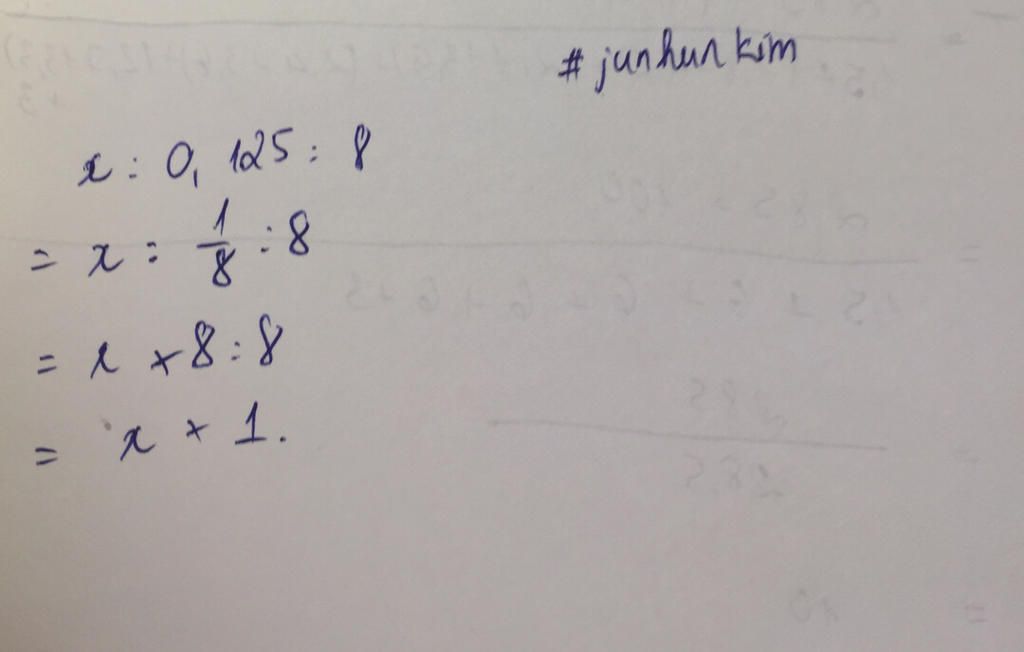 # junhunkim
x : 0,125 : 8
= x : 1/8 : 8
= x × 8 : 8
= x × 1.